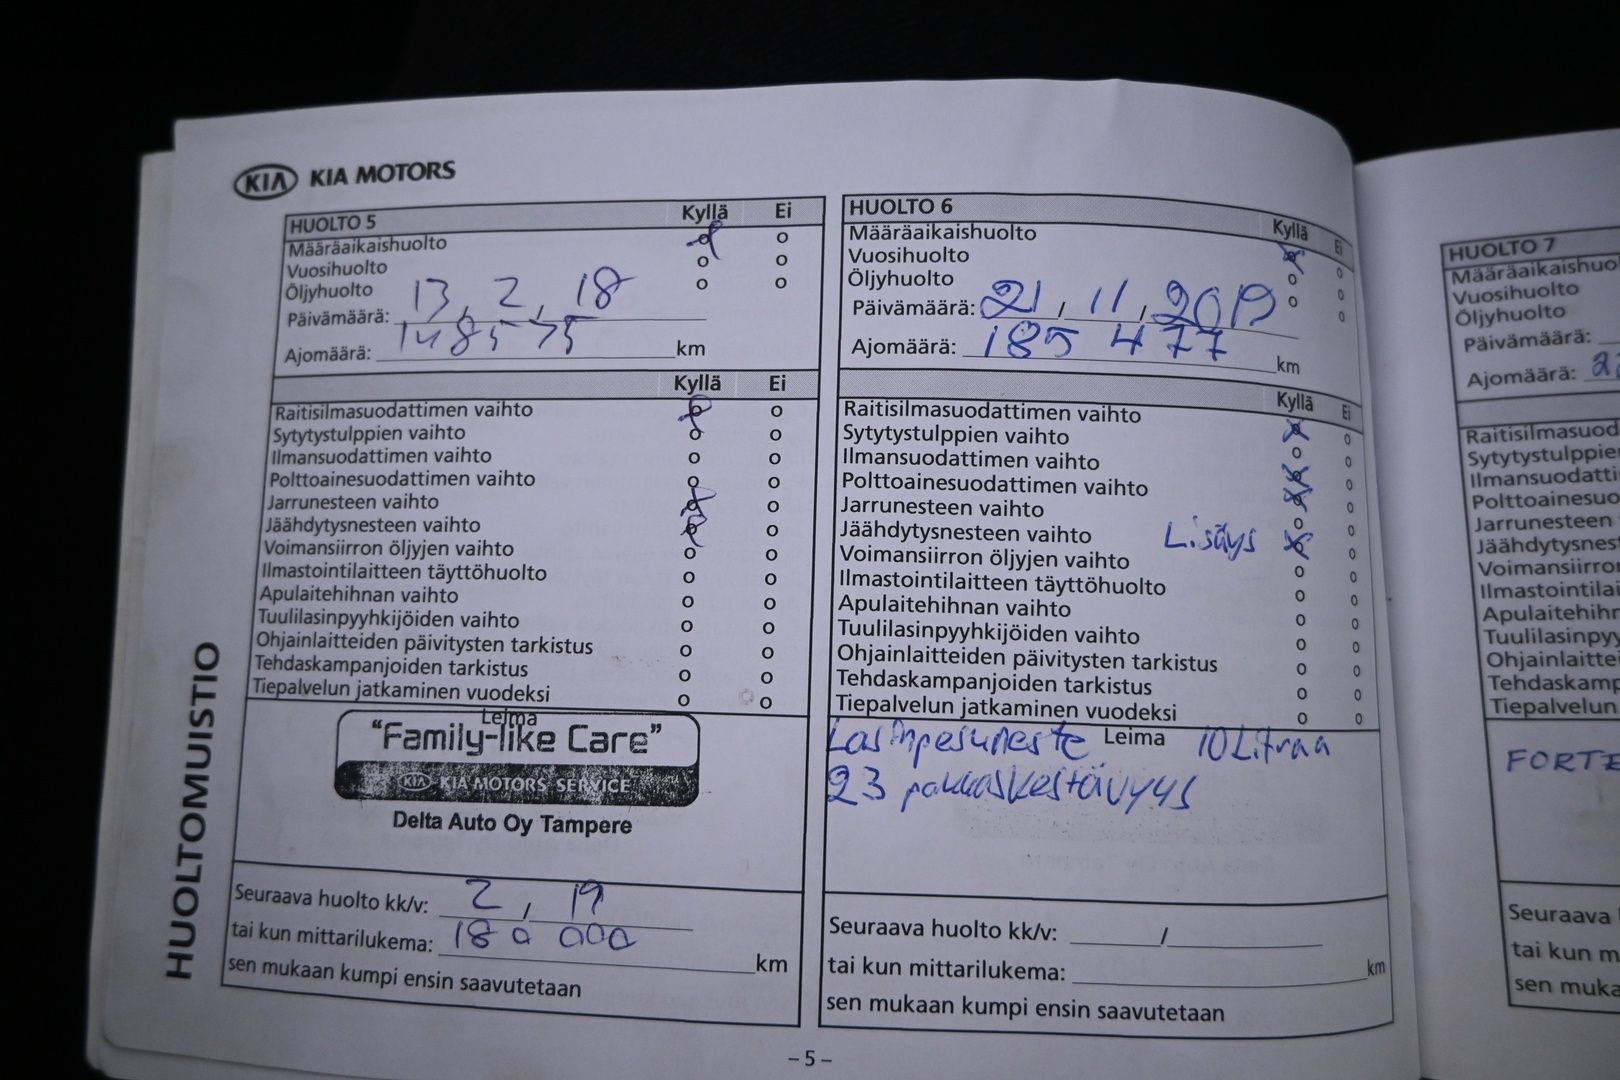 KIA KIA MOTORS
HUOLTOMUISTIO
HUOLTO 5 Kyllä Ei
Määräaikaishuolto o o
Vuosihuolto o o
Öljyhuolto o o
Päivämäärä: 13, 2, 18
Ajomäärä: 148575 km
Kyllä Ei
Raitisilmasuodattimen vaihto o o
Sytytystulppien vaihto o o
Ilmansuodattimen vaihto o o
Polttoainesuodattimen vaihto o o
Jarrunesteen vaihto o o
Jäähdytysnesteen vaihto o o
Voimansiirron öljyjen vaihto o o
Ilmastointilaitteen täyttöhuolto o o
Apulaitehihnan vaihto o o
Tuulilasinpyyhkijöiden vaihto o o
Ohjainlaitteiden päivitysten tarkistus o o
Tehdaskampanjoiden tarkistus o o
Tiepalvelun jatkaminen vuodeksi o o
Leima
"Family-like Care"
KIA KIA MOTORS SERVICE
Delta Auto Oy Tampere
Seuraava huolto kk/v: 2 / 19
tai kun mittarilukema: 180 000 km
sen mukaan kumpi ensin saavutetaan
HUOLTO 6 Kyllä Ei
Määräaikaishuolto o o
Vuosihuolto o o
Öljyhuolto o o
Päivämäärä: 21 / 11 / 2019
Ajomäärä: 185 477 km
Kyllä Ei
Raitisilmasuodattimen vaihto o o
Sytytystulppien vaihto o o
Ilmansuodattimen vaihto o o
Polttoainesuodattimen vaihto o o
Jarrunesteen vaihto o o
Jäähdytysnesteen vaihto Lisäys o o
Voimansiirron öljyjen vaihto o o
Ilmastointilaitteen täyttöhuolto o o
Apulaitehihnan vaihto o o
Tuulilasinpyyhkijöiden vaihto o o
Ohjainlaitteiden päivitysten tarkistus o o
Tehdaskampanjoiden tarkistus o o
Tiepalvelun jatkaminen vuodeksi o o
Lasinpesuneste Leima 10 Litraa
23 pakkaskestävyys
Seuraava huolto kk/v: /
tai kun mittarilukema: km
sen mukaan kumpi ensin saavutetaan
– 5 –
HUOLTO 7
Määräaikaishuo
Vuosihuolto
Öljyhuolto
Päivämäärä:
Ajomäärä:
Raitisilmasuod
Sytytystulppie
Ilmansuodatti
Polttoainesuo
Jarrunesteen
Jäähdytysnest
Voimansiirro
Ilmastointilai
Apulaitehihn
Tuulilasinpyy
Ohjainlaitte
Tehdaskamp
Tiepalvelun
FORTE
Seuraava
tai kun m
sen muka